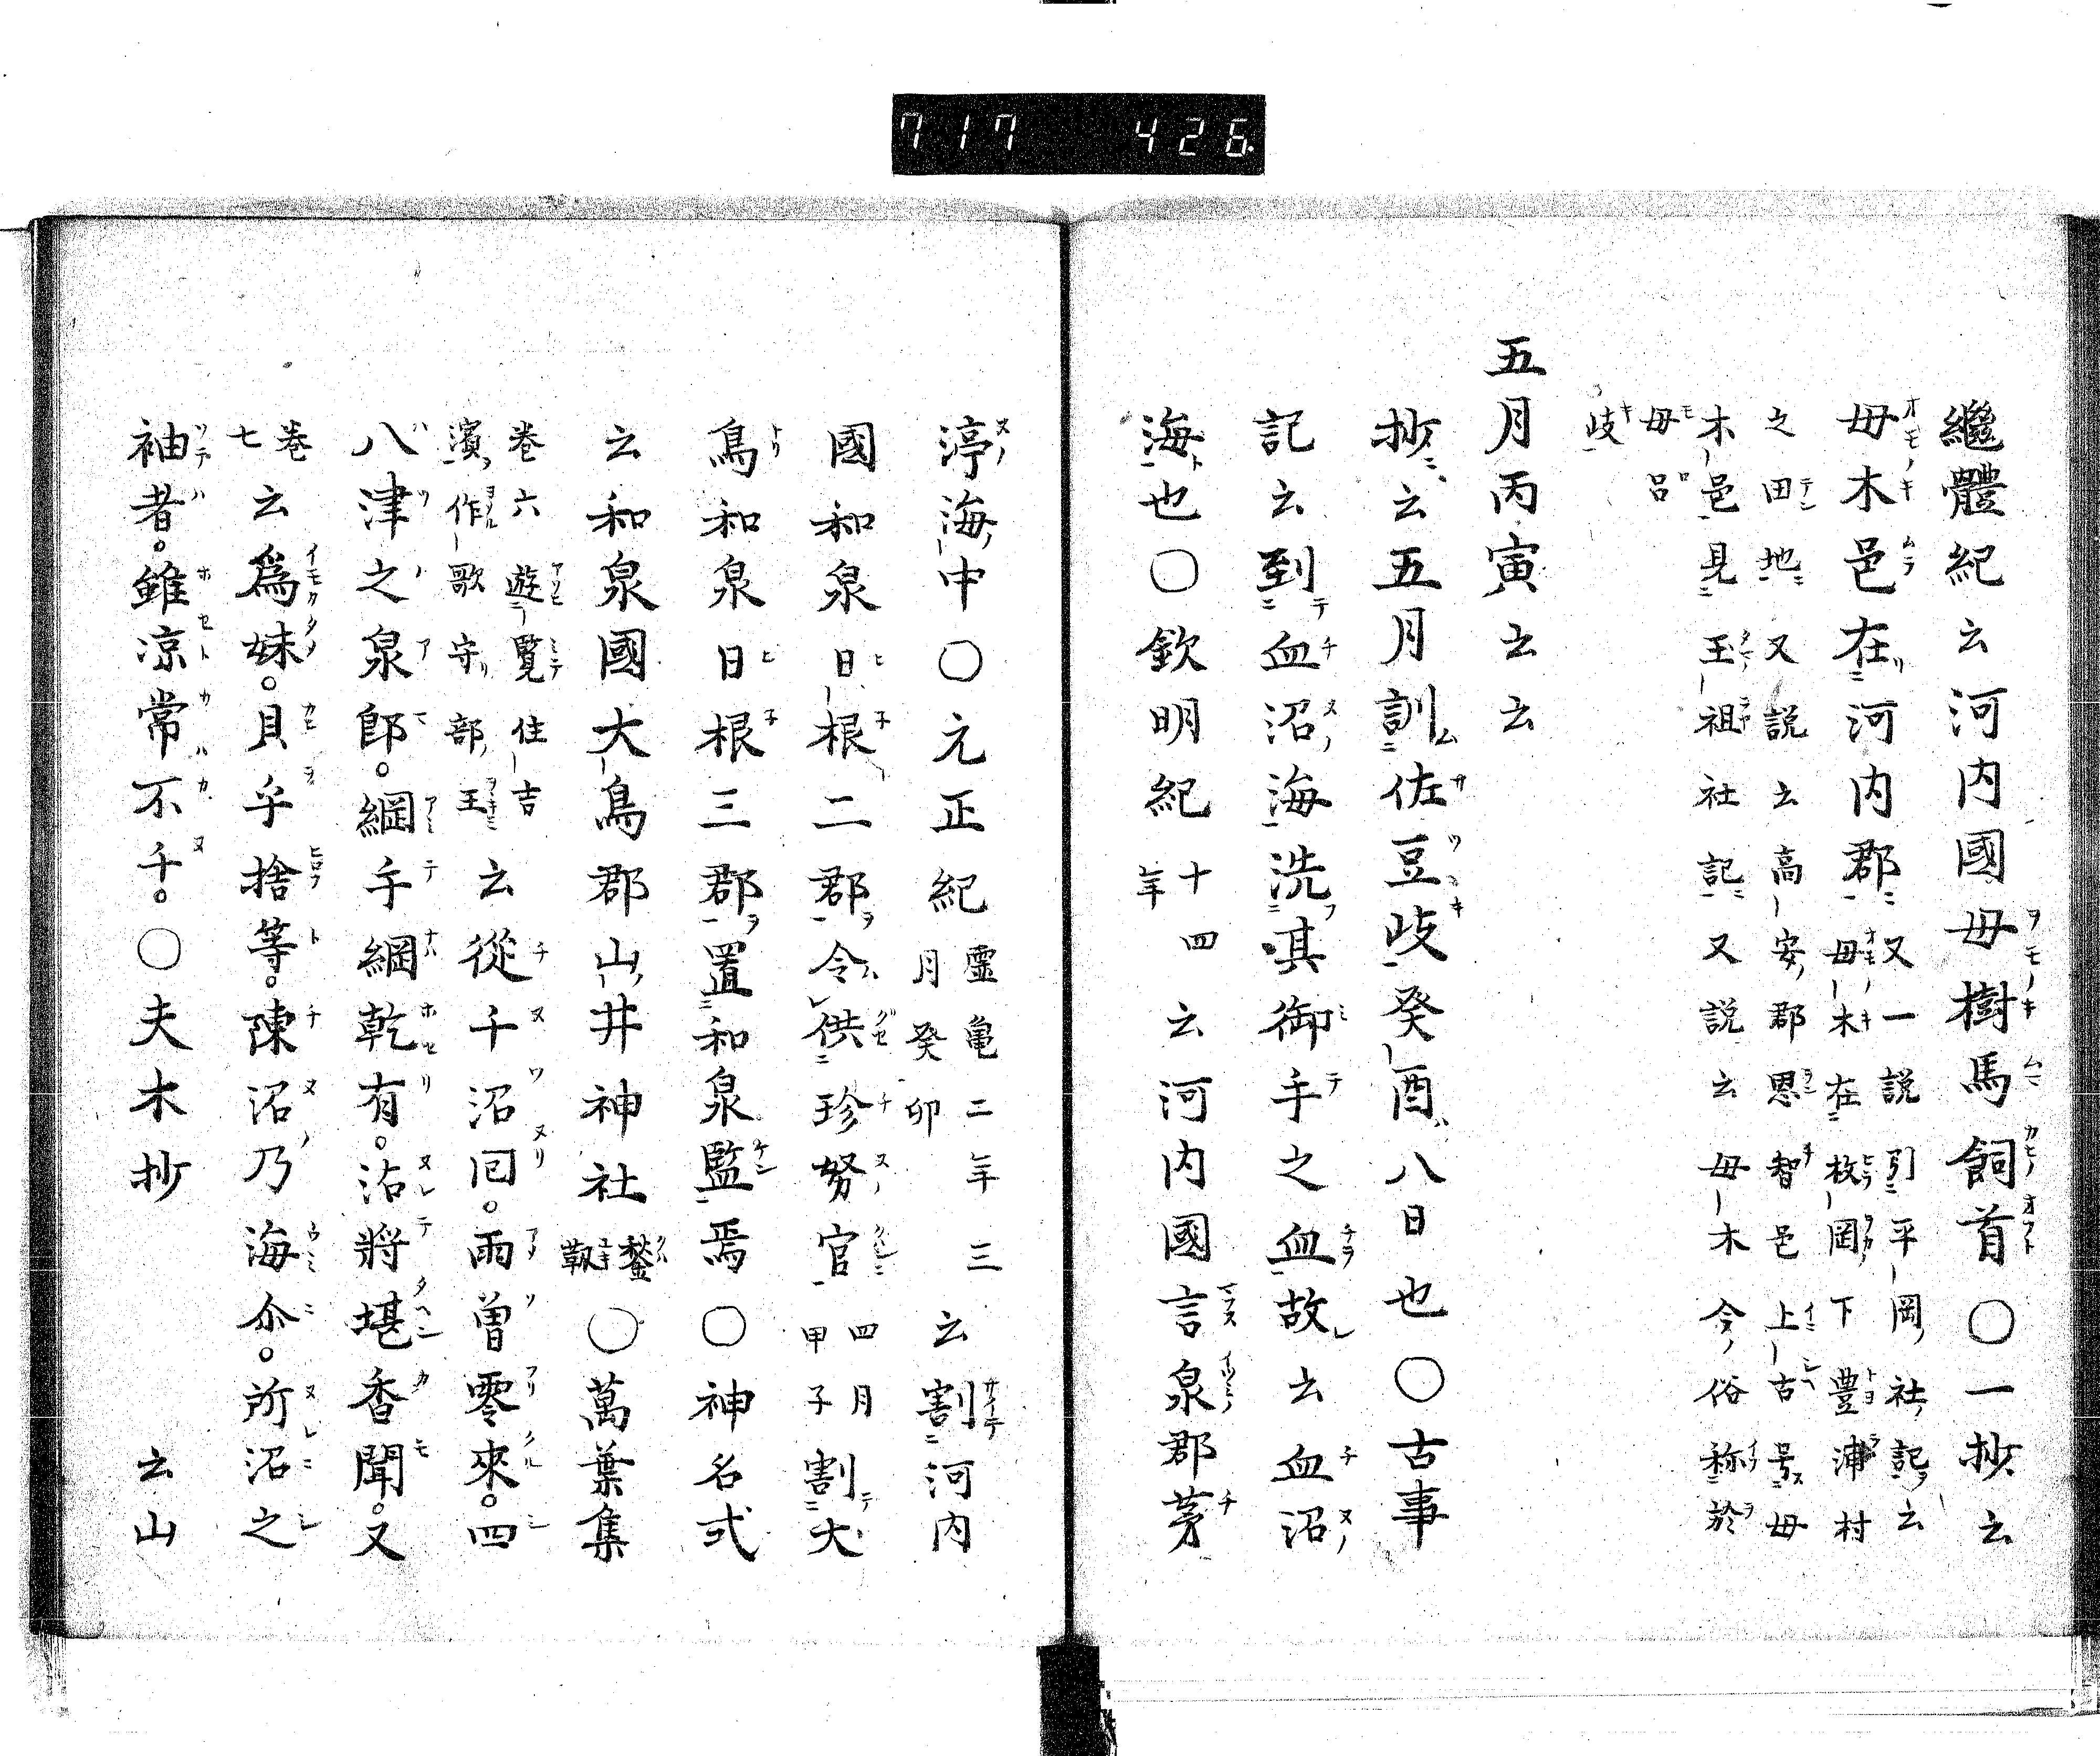 717 426
繼體紀云河内國毋樹馬飼首〇一抄云
毋木邑在河内郡又一説引平岡社記云
毋木在枚岡下豊浦村
之田地又説云高安郡恩智邑上古号毋
木邑見王祖社記又説云毋木今俗称於
毋呂
岐
五月丙寅云云
抄云五月訓佐豆岐癸酉八日也〇古事
記云到血沼海洗其御手之血故云血沼
海也〇欽明紀十四年云河内國言泉郡茅
渟海中〇元正紀霊亀二年三月癸卯云割河内
國和泉日根二郡令供珍努官四月甲子割大
鳥和泉日根三郡置和泉監焉〇神名式
云和泉國大鳥郡山井神社鍫靱〇萬葉集
巻六遊覧住吉濱作歌守部王云從千沼回。雨曽零來。四
八津之泉郎。綱手綱乾有。沾將堪香聞。又
巻七云爲妹。貝乎捨等。陳沼乃海尒。所沼之
袖者。雖凉常不千。〇夫木抄 云山